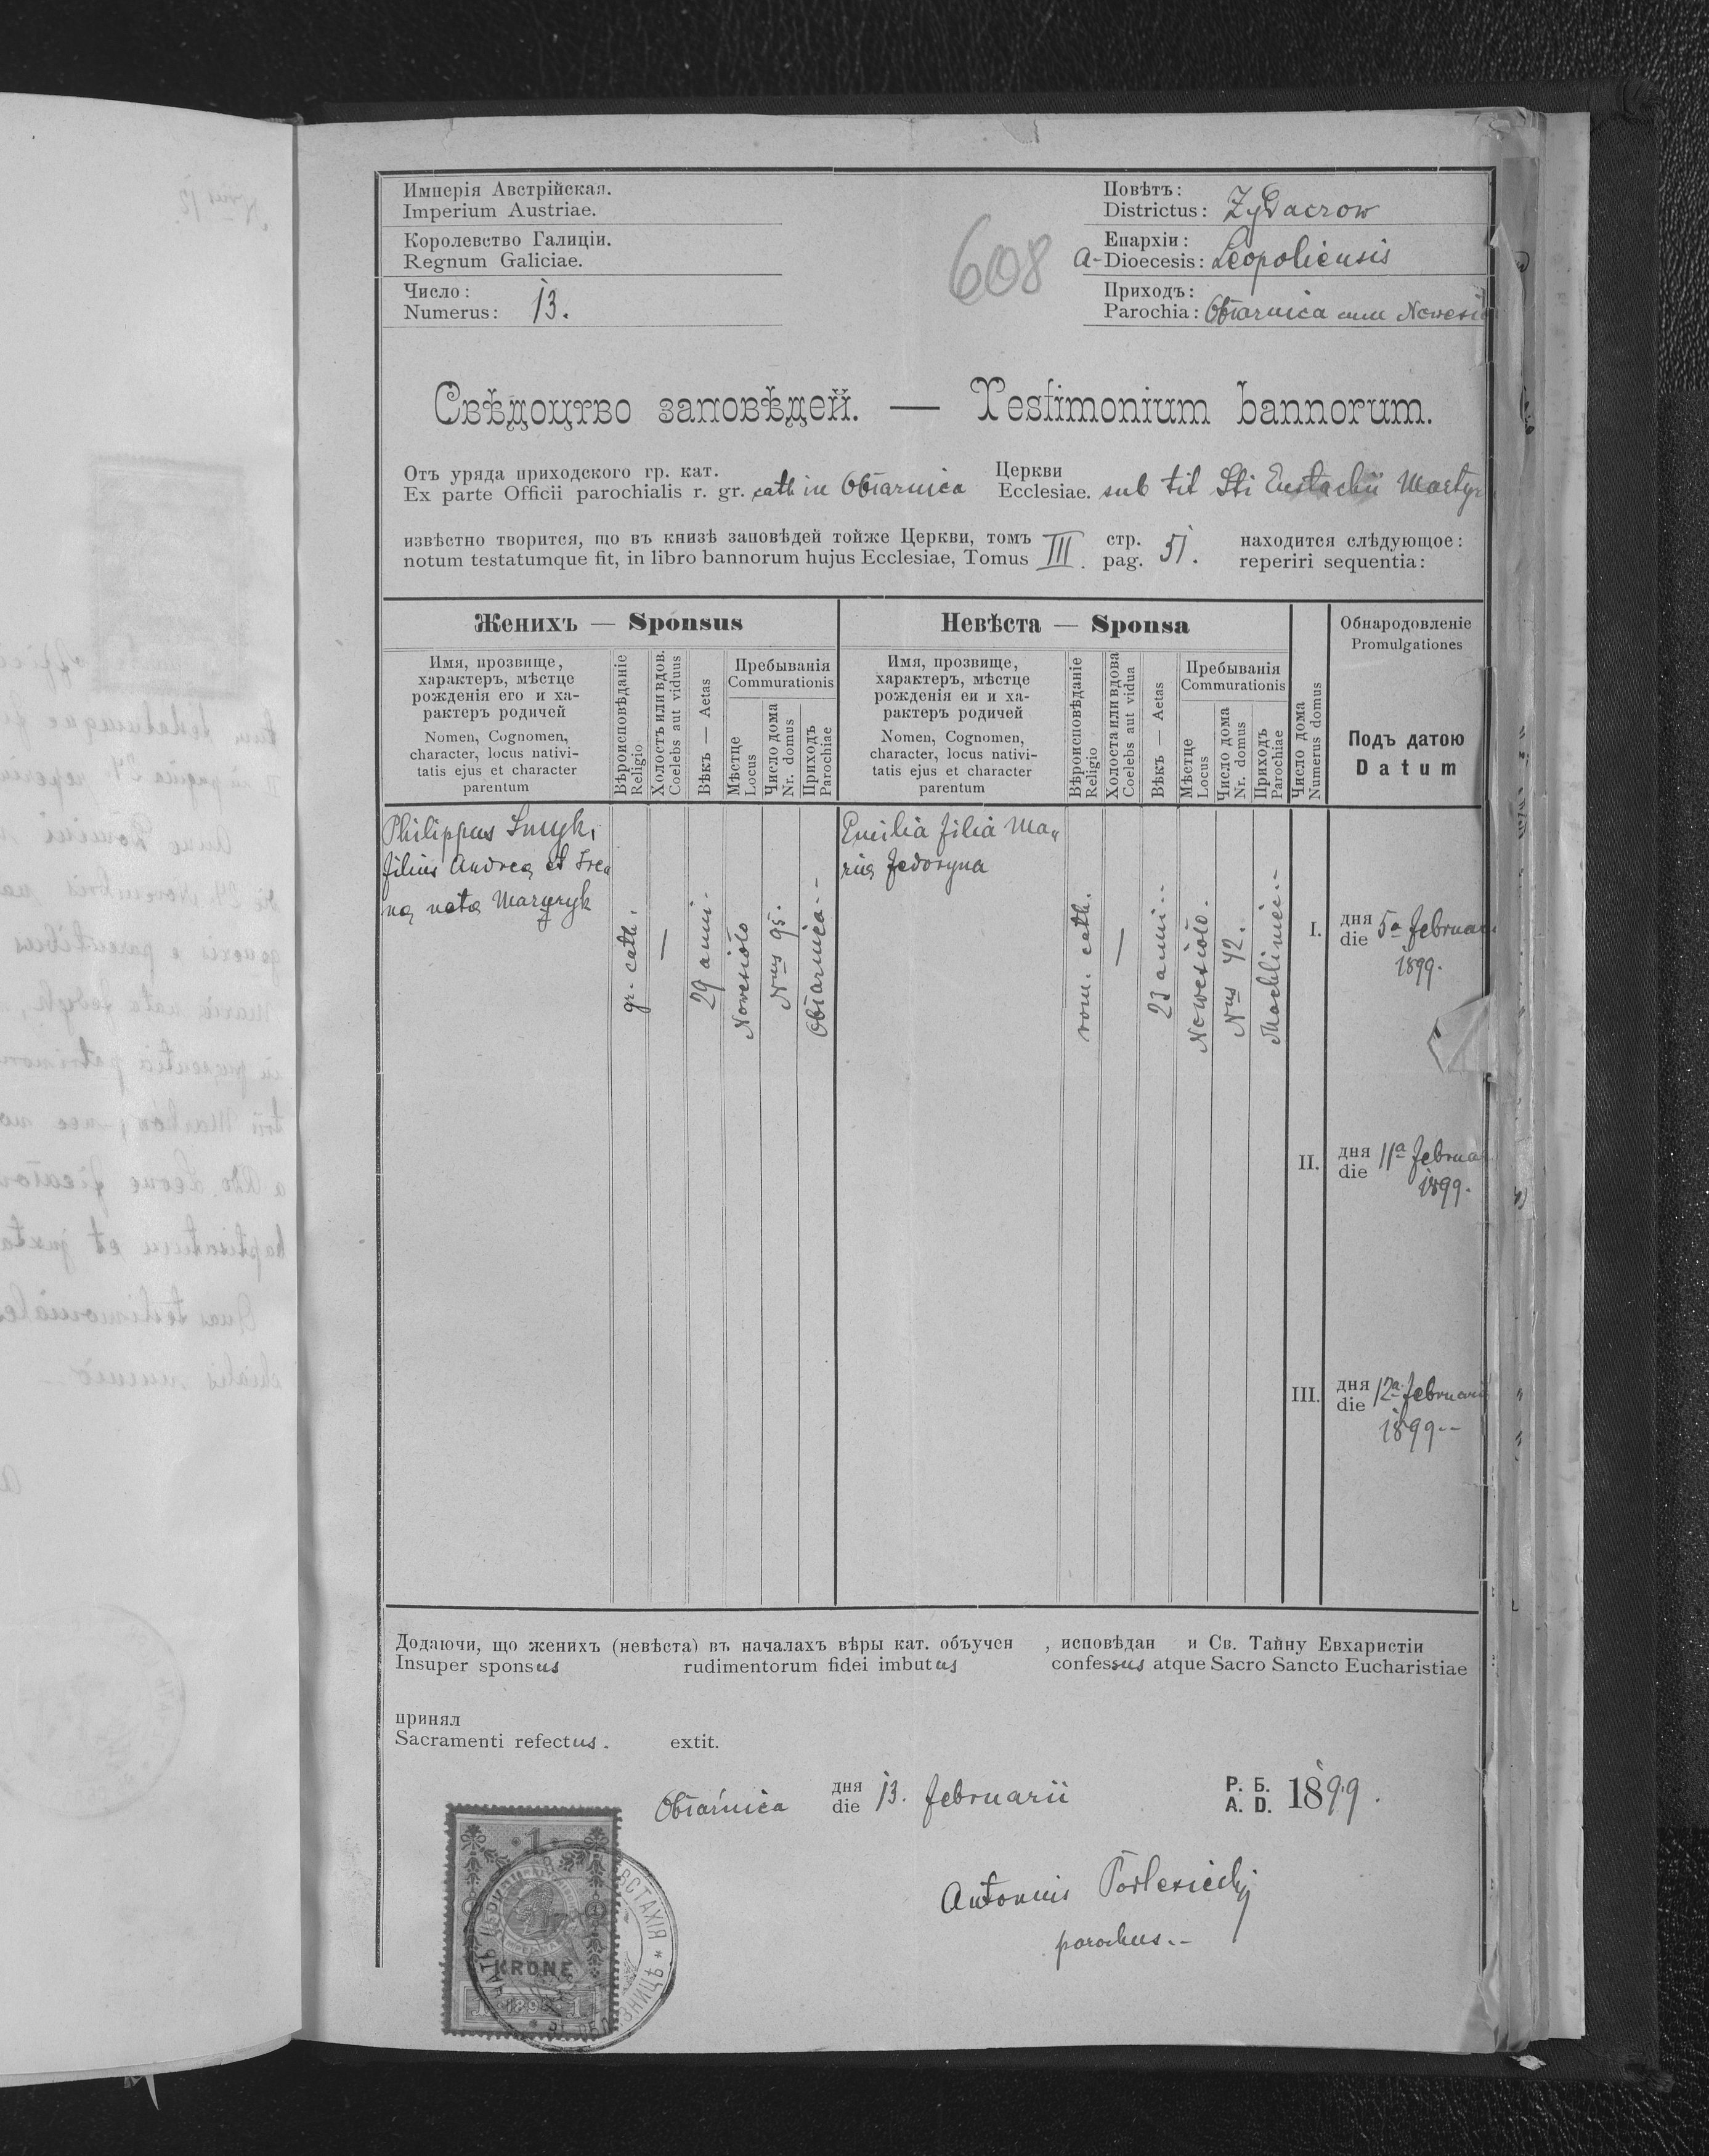 Имперія Австрійская.
Imperium Austriae.
Королевство Галиціи.
Regnum Galiciae.
Число:
Numerus: 13.
608
Повѣтъ:
Districtus: Zydaczow
Епархіи:
A-Dioecesis: Leopoliensis
Приходъ:
Parochia: Obłaznica cum
Свѣдоцтво заповѣдей. — Testimonium bannorum.
Отъ уряда приходского гр. кат. Церкви
Ex parte Officii parochialis r. gr. cath in Obłaznica Ecclesiae. sub tit Sti Eustachii Martyr
извѣстно творится, що въ книзѣ заповѣдей тойже Церкви, томъ стр. находится слѣдующое:
notum testatumque fit, in libro bannorum hujus Ecclesiae, Tomus III. pag. 51. reperiri sequentia:
Женихъ — Sponsus
Имя, прозвище,
характеръ, мѣстце
рожденія его и ха-
рактеръ родичей
Nomen, Cognomen,
character, locus nativi-
tatis ejus et character
parentum
Вѣроисповѣданіе
Religio
Холостъ или вдов.
Coelebs aut viduus
Вѣкъ — Aetas
Пребыванія
Commurationis
Мѣстце
Locus
Число дома
Nr. domus
Приходъ
Parochiae
Невѣста — Sponsa
Имя, прозвище,
характеръ, мѣстце
рожденія еи и ха-
рактеръ родичей
Nomen, Cognomen,
character, locus nativi-
tatis ejus et character
parentum
Вѣроисповѣданіе
Religio
Холоста или вдова
Coelebs aut vidua
Вѣкъ — Aetas
Пребыванія
Commurationis
Мѣстце
Locus
Число дома
Nr. domus
Приходъ
Parochiae
Число дома
Numerus domus
Обнародовленіе
Promulgationes
Подъ датою
Datum
Philippus Smyk,
filius Andreą et Ire„
ną natą
gr. cath.
—
29 anni.
Novesioło
Nrus 95.
Obłaznica -
Emilia filia Ma„
rią Fedoryna
rom. cath.
—
23 anni.
Nowesioło.
Nrus 42.
I. дня
die 5a Februar
1899.
II. дня
die 11a Februa
1899.
III. дня
die 12a Februarii
1899.-
Додаючи, що женихъ (невѣста) въ началахъ вѣры кат. объучен , исповѣдан и Св. Тайну Евхаристіи
Insuper sponsus rudimentorum fidei imbutus confessus atque Sacro Sancto Eucharistiae
принял
Sacramenti refectus. extit.
Obłaźnica дня
die 13. Februarii Р. Б.
A. D. 1899.
Antonius
parochus.-
1
KRONE
1 1898 1